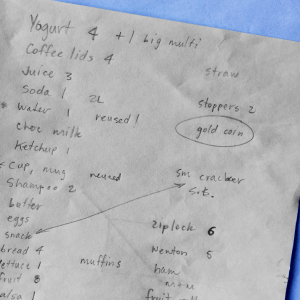 Yogurt 4 + 1 big multi
Coffee lids 4
Juice 3
Soda 1 2L
* water 1 reused 1
choc milk
Ketchup 1
cup, mug
Shampoo 2
butter
eggs
snack
bread 4
lettuce 1 muffins
fruit 8
salsa 1
straw
stoppers 2
gold corn
sm cracker
S.B.
ziplock 6
Newton 5
ham
mom
fruit